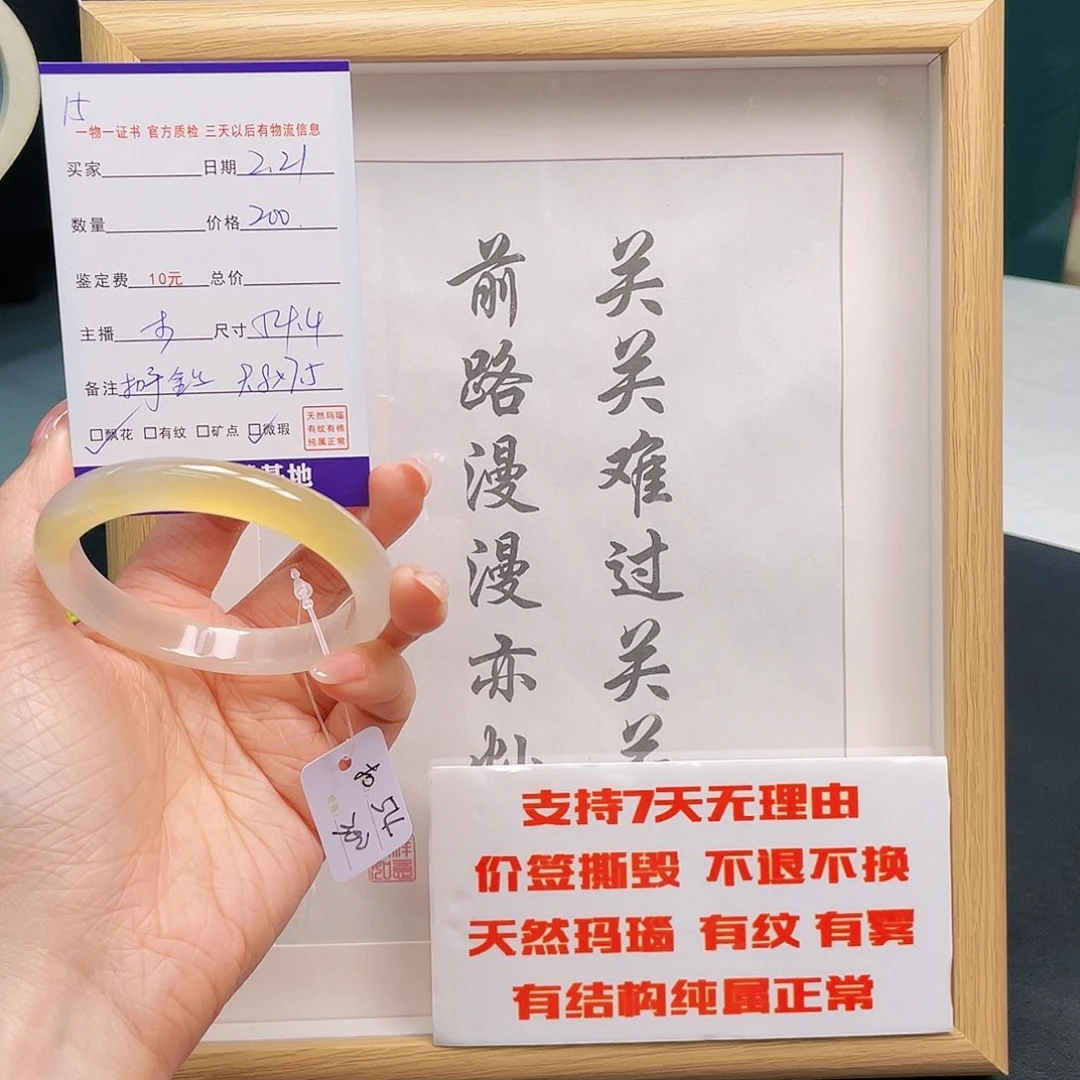 15
一物一证书 官方质检 三天以后有物流信息
买家 日期 2.21
数量 价格 200.
鉴定费 10元 总价
主播 尺寸 54.4
备注 7.5
飘花 有纹 矿点 微瑕
天然玛瑙
有纹有棉
纯属正常
基地
关关难过关关
前路漫漫亦灿
54
支持7天无理由
价签撕毁 不退不换
天然玛瑙 有纹 有雾
有结构纯属正常